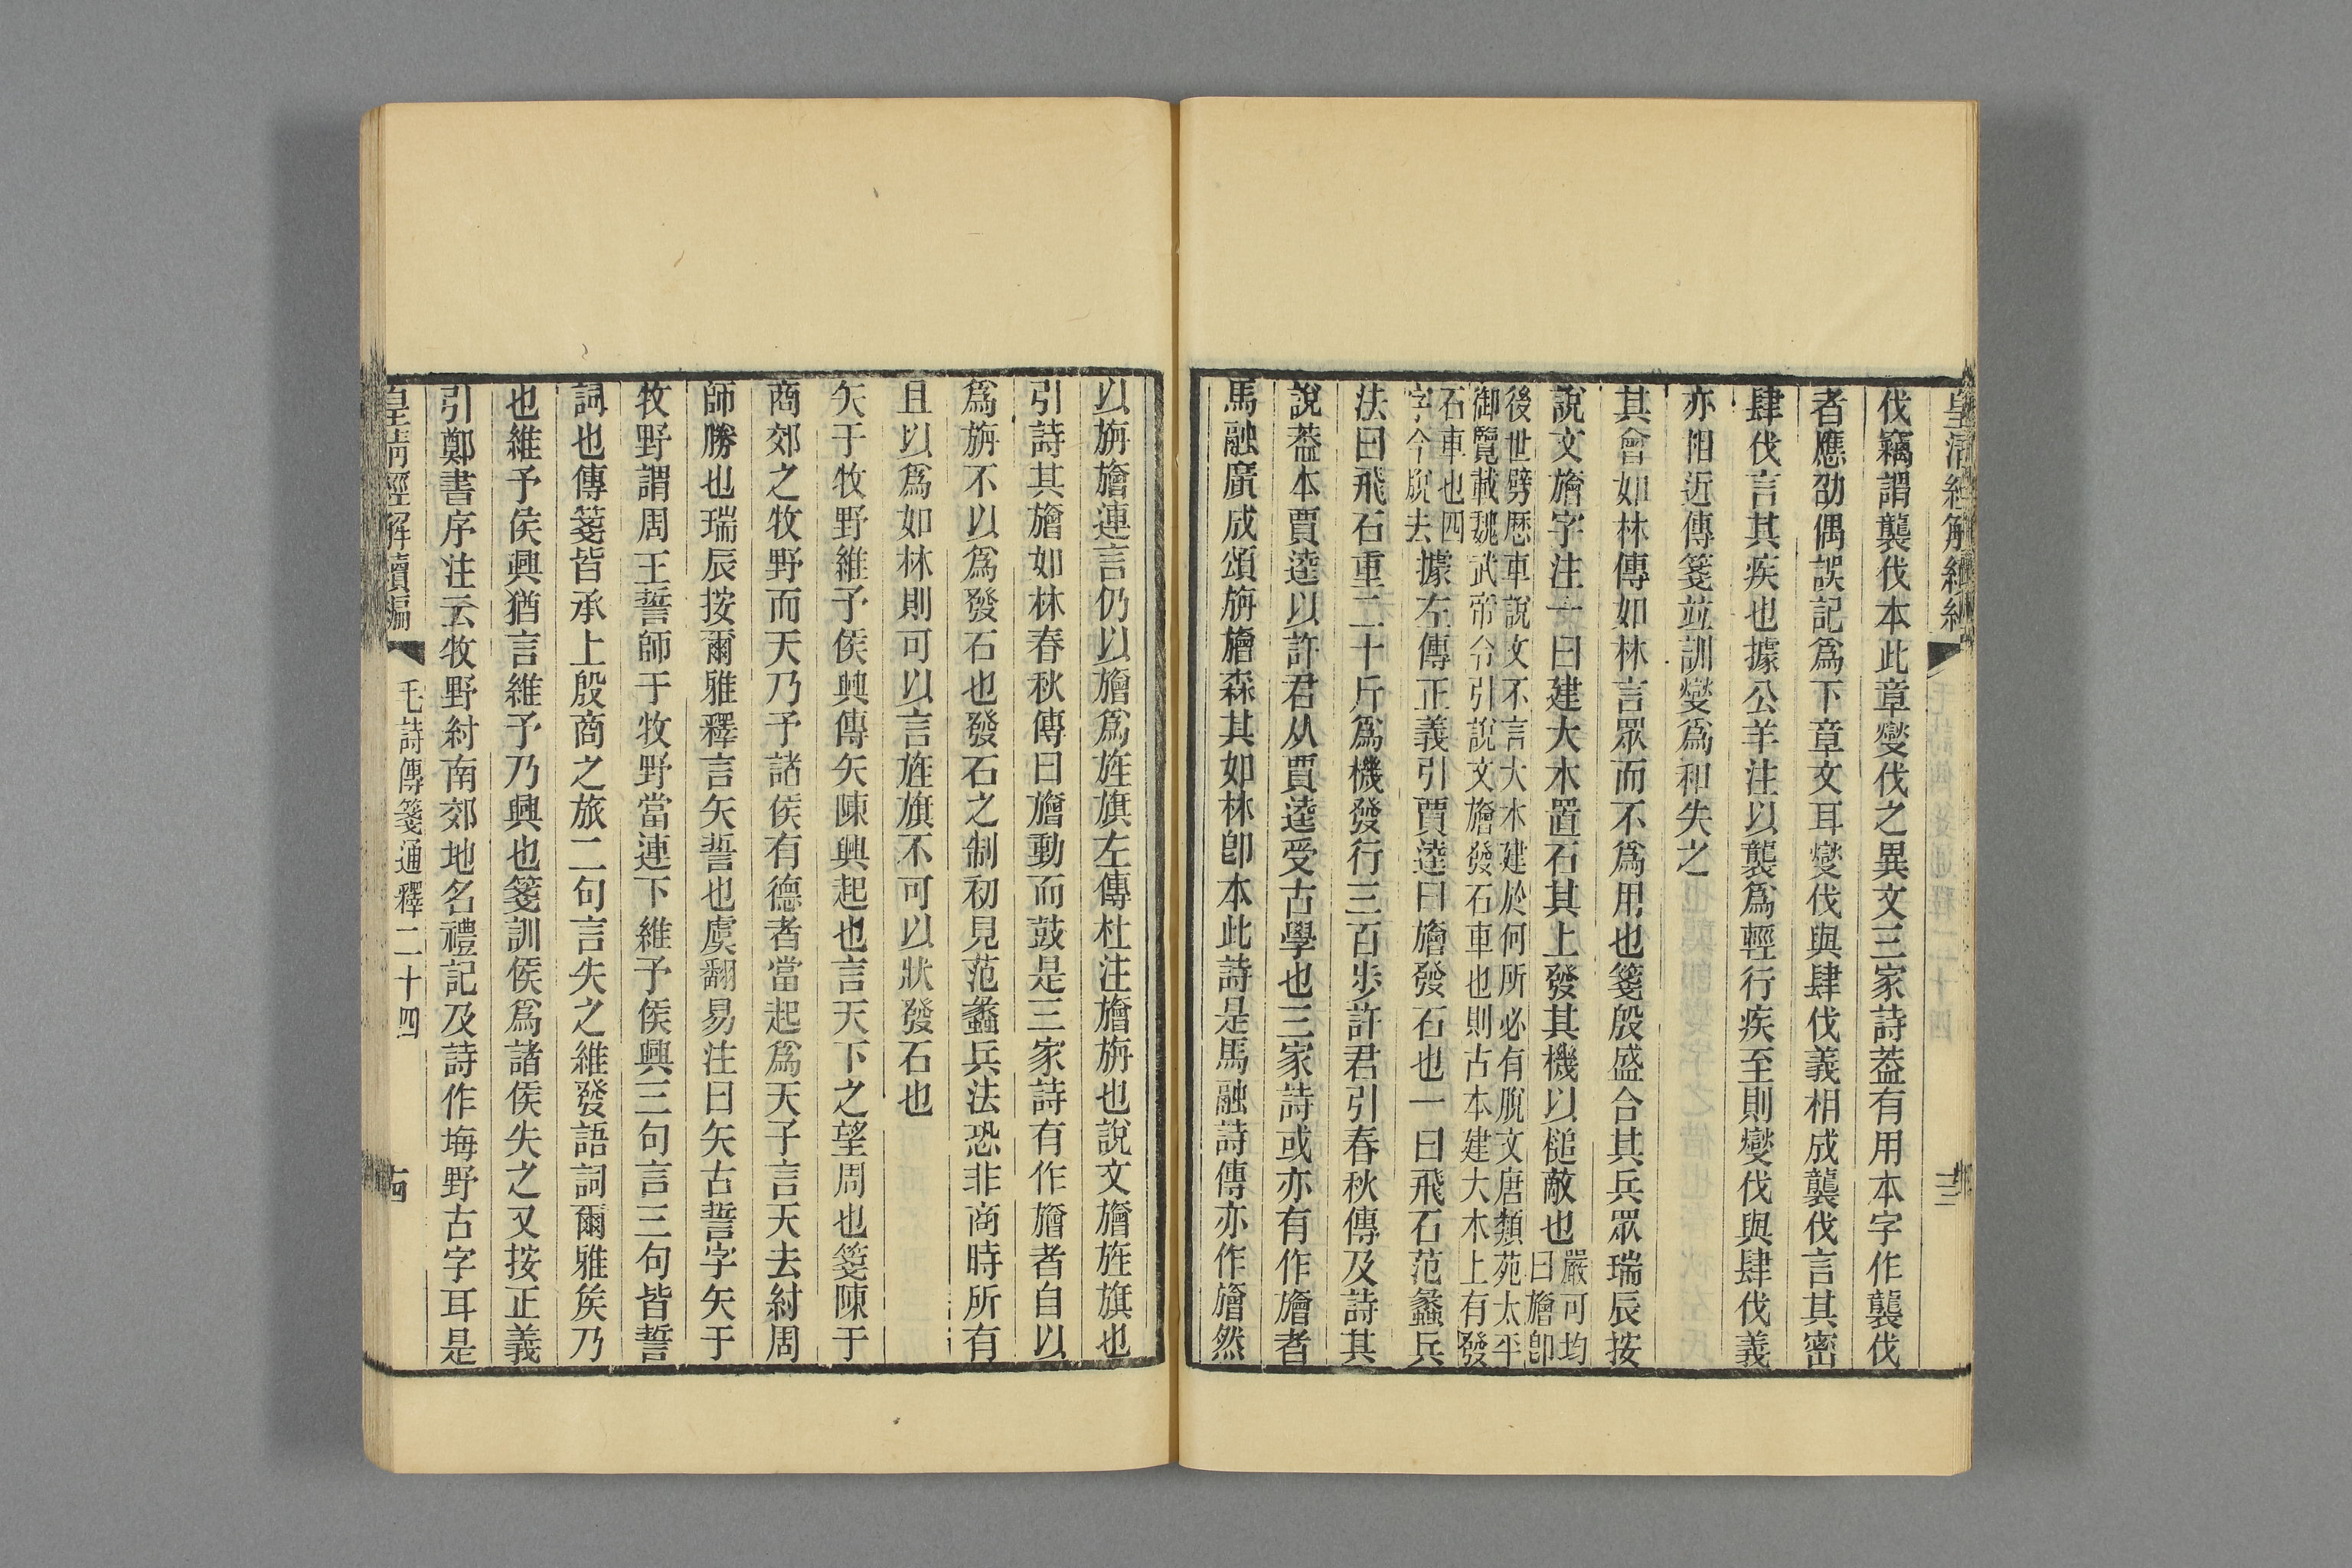 伐竊謂襲伐本此章燮伐之異文三家詩葢有用本字作襲伐
者應劭偶誤記爲下章文耳燮伐與肆伐義相成襲伐言其密
肆伐言其疾也據公羊注以襲爲輕行疾至則燮伐與肆伐義
亦相近傳箋竝訓燮爲和失之
其會如林傳如林言眾而不爲用也箋殷盛合其兵眾瑞辰按
說文旝字注一曰建大木置石其上發其機以槌敵也嚴可均
曰旝卽
後世劈歴車說文不言大木建於何所必有脫文唐類苑太平
御覽載魏武帝令引說文旝發石車也則古本建大木上有發
石車也四
字今脫去據左傳正義引賈逵曰旝發石也一曰飛石范蠡兵
法曰飛石重二十斤爲機發行三百步許君引春秋傳及詩其
說葢本賈逵以許君从賈逵受古學也三家詩或亦有作旝者
馬融廣成頌旃旝森其如林卽本此詩是馬融詩傳亦作旝然
以旃旝連言仍以旝爲旌旗左傳杜注旝旃也說文旝旌旗也
引詩其旝如林春秋傳曰旝動而鼓是三家詩有作旝者自以
爲旃不以爲發石也發石之制初見范蠡兵法恐非商時所有
且以爲如林則可以言旌旗不可以狀發石也
矢于牧野維予侯興傳矢陳興起也言天下之望周也箋陳于
商郊之牧野而天乃予諸侯有德者當起爲天子言天去紂周
師勝也瑞辰按爾雅釋言矢誓也虞翻易注曰矢古誓字矢于
牧野謂周王誓師于牧野當連下維予侯興三句言三句皆誓
詞也傳箋皆承上殷商之旅二句言失之維發語詞爾雅矦乃
也維予侯興猶言維予乃興也箋訓侯爲諸侯失之又按正義
引鄭書序注云牧野紂南郊地名禮記及詩作坶野古字耳是
皇清經解續編
毛詩傳箋通釋二十四